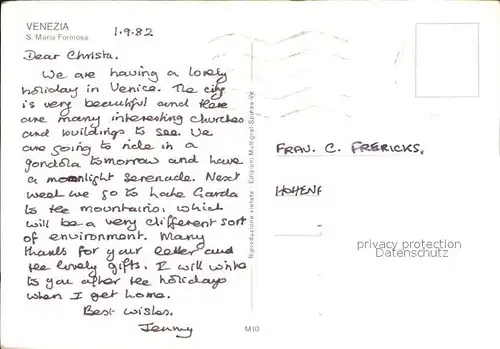 VENEZIA
S. Maria Formosa
1.9.82
Dear Christa,
We are having a lovely
holiday in Venice. The city
is very beautiful and there
are many interesting churches
and buildings to see. We
are going to ride in a
gondola tomorrow and have
a moonlight serenade. Next
week we go to Lake Garda
to the mountains, which
will be a very different sort
of environment. Many
thanks for your letter and
the lovely gifts. I will write
to you after the holidays
when I get home.
Best wishes,
Jenny
Riproduzione vietata
Edizioni
M10
FRAU. C. FRERICKS.
HOHENF
privacy protection
Datenschutz